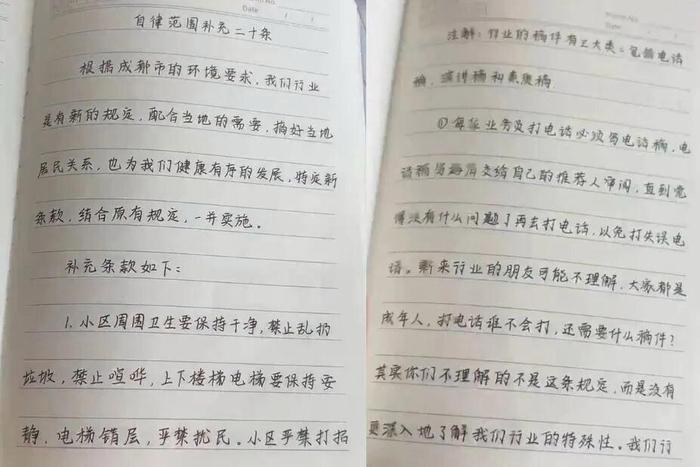 Date
自律范围补充二十条
根据成都市的环境要求，我们行业
是有新的规定，配合当地的需要，搞好当地
居民关系，也为我们健康有序的发展，特定新
条款，结合原有规定，一并实施。
补充条款如下：
1. 小区周围卫生要保持干净，禁止乱扔
垃圾，禁止喧哗，上下楼梯电梯要保持安
静，电梯错层，严禁扰民。小区严禁打招
Date
注解：行业的稿件有三大类：包括电话
稿，演讲稿和素质稿
①每位业务员打电话必须写电话稿，电
话稿写 交给自己的推荐人审阅，直到觉
得没有什么问题了再去打电话，以免打失误电
话。新来行业的朋友可能不理解，大家都是
成年人，打电话谁不会打，还需要什么稿件？
其实你们不理解的不是这条规定，而是没有
更深入地了解我们行业的特殊性。我们行